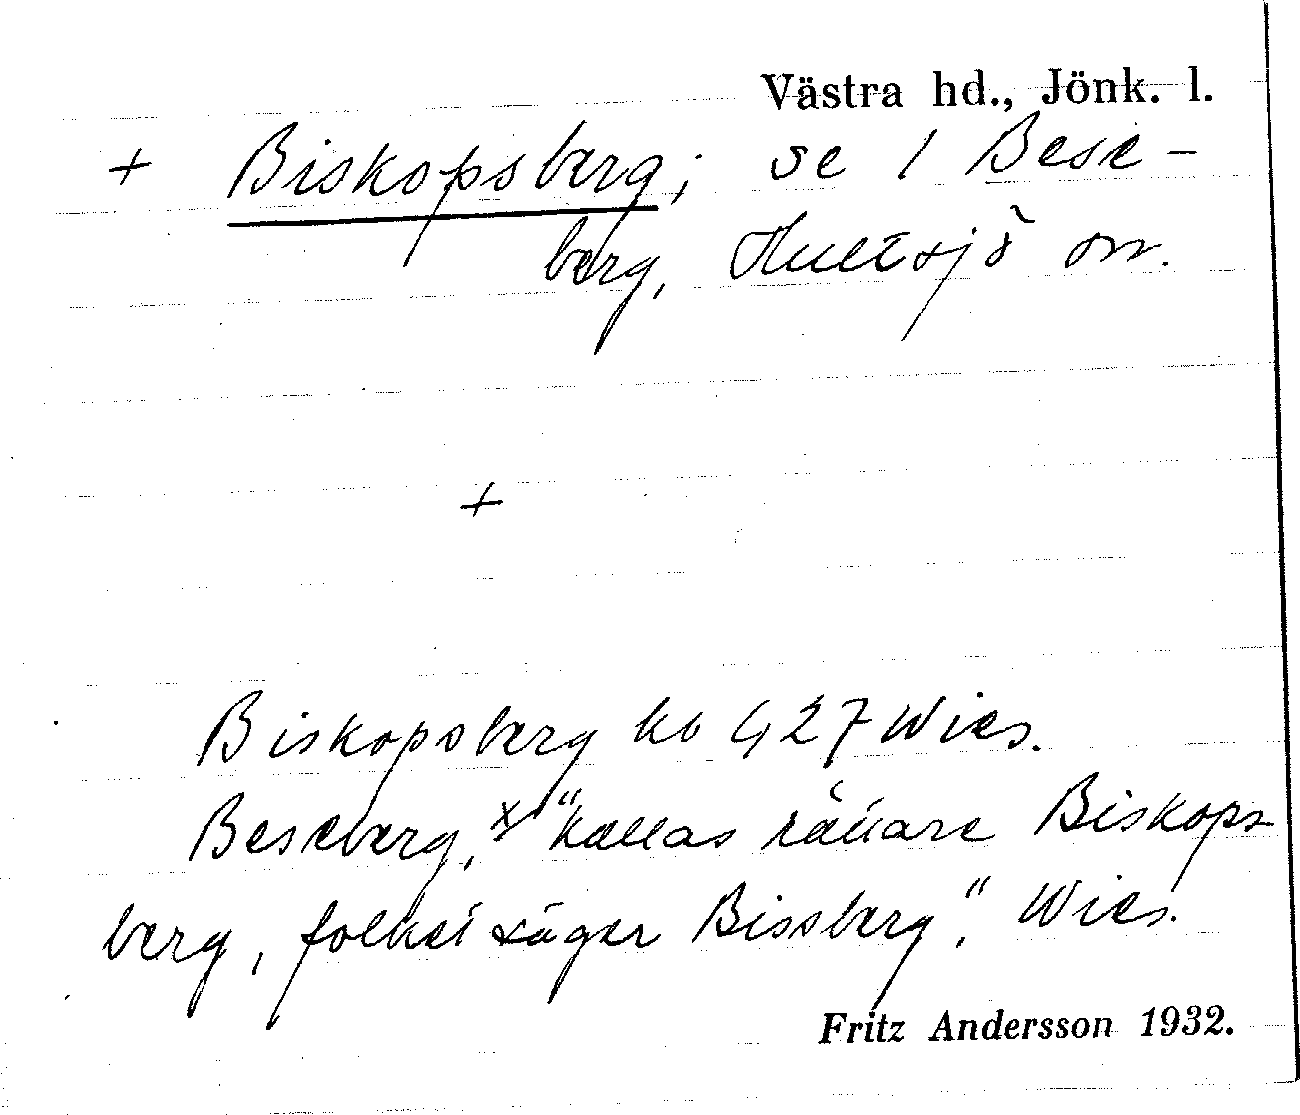 Västra hd., Jönk. l.
+ Biskopsberg; se 1 Bese-
berg, Hultsjö sn.
+
Biskopsberg kb 4,27 Wies.
Beseberg, x) "kallas rättare Biskops-
berg, folket säger Bissberg". Wies.
Fritz Andersson 1932.